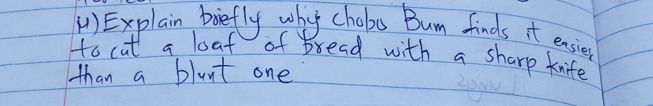 4) Explain briefly why chobo Bum finds it easier
to cut a loaf of bread with a sharp knife
than a blunt one